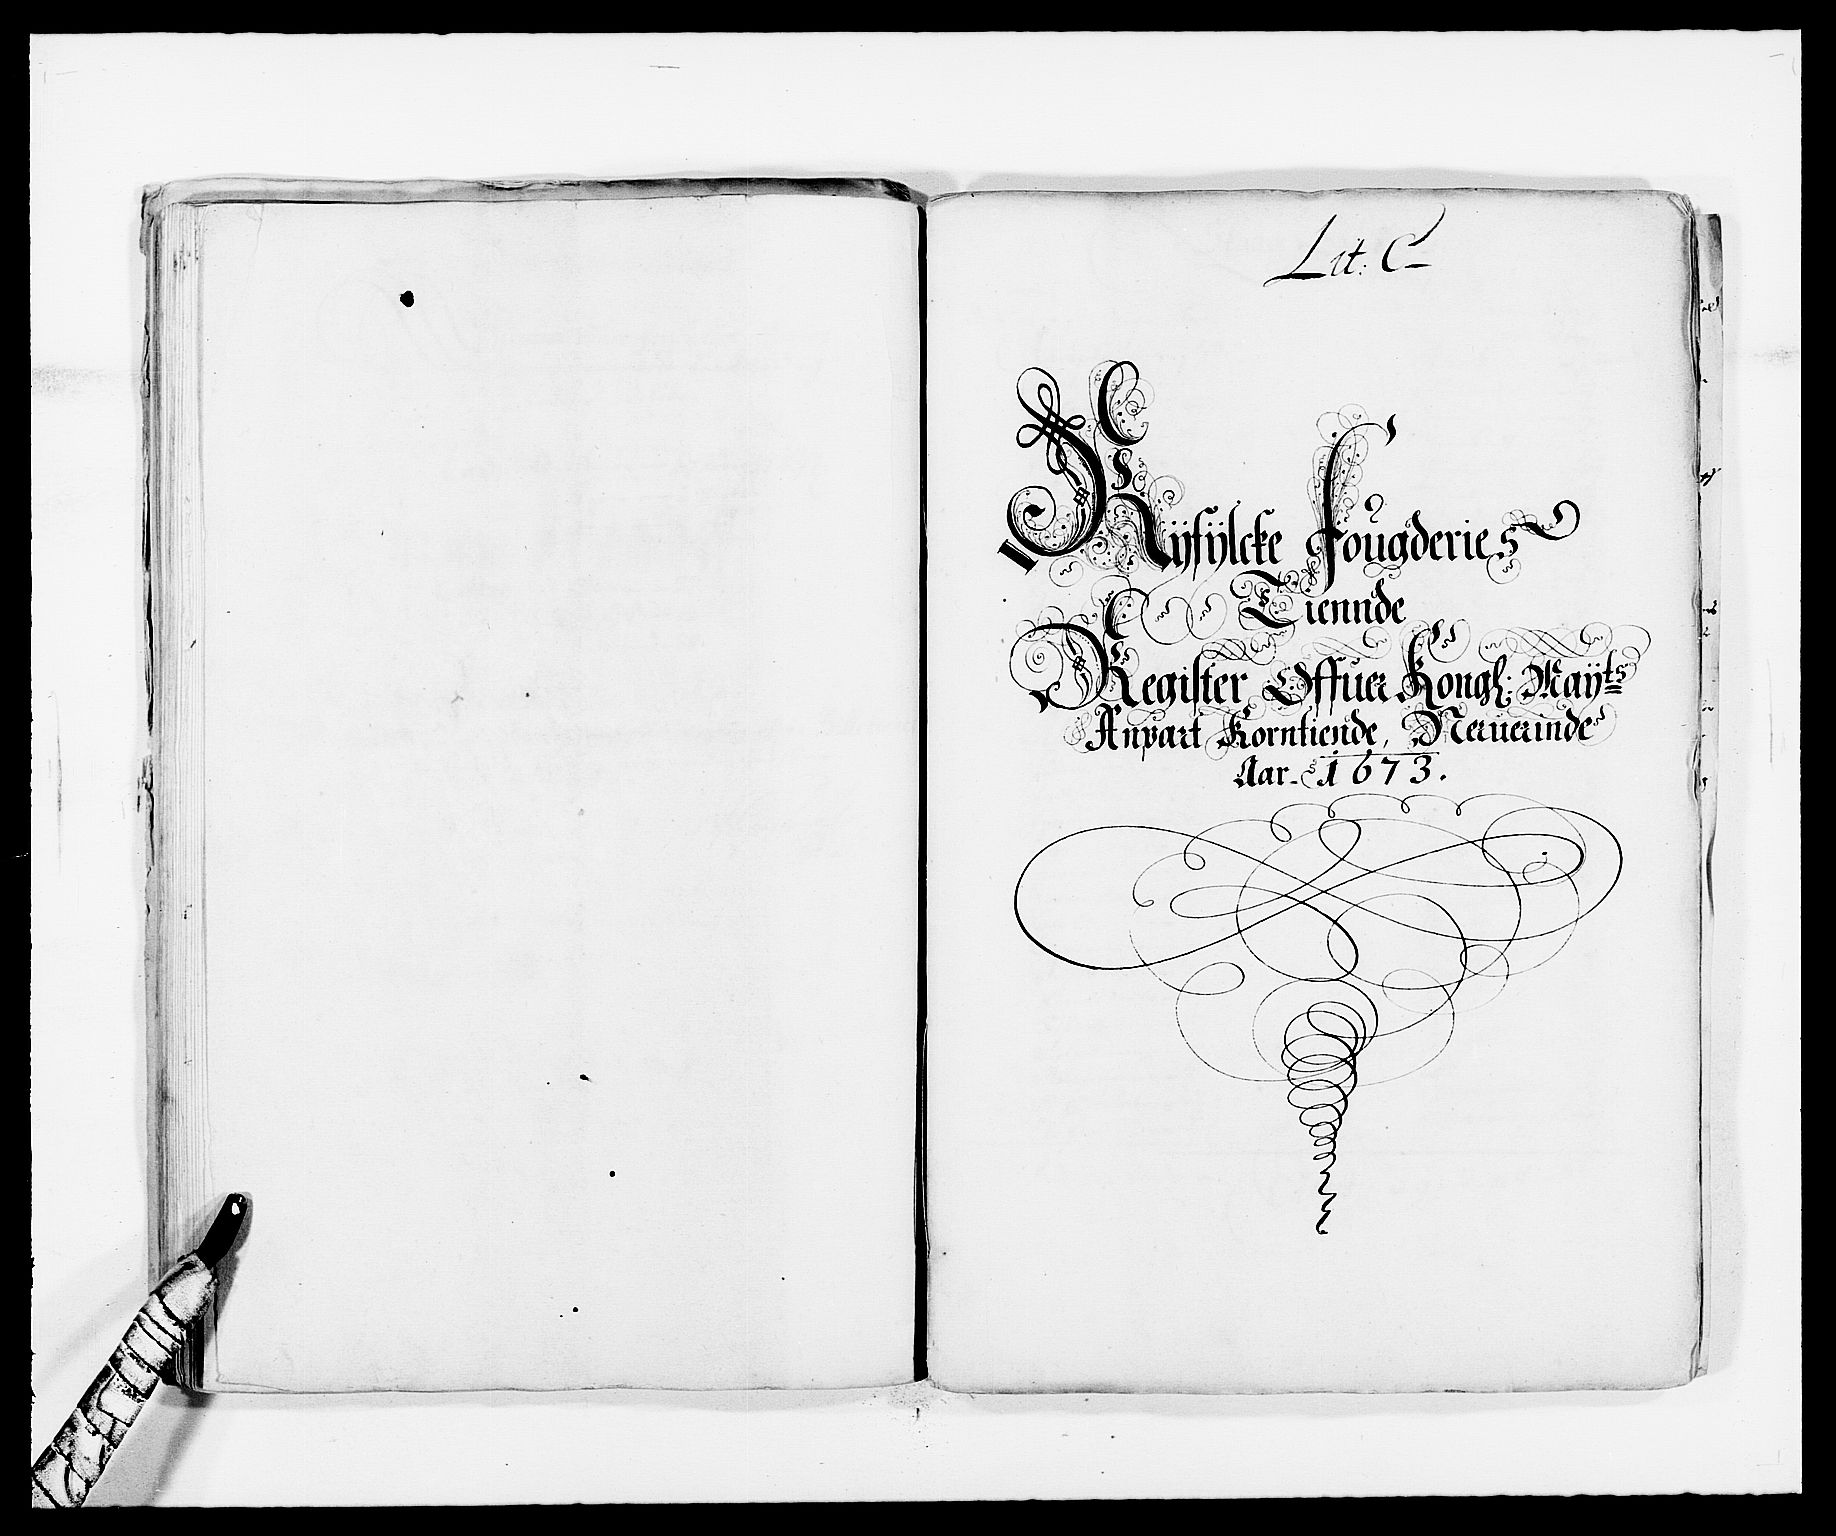 Lit: C
Ryfylcke fougderies
Tiennde
Register Offuer Kongl: Mayts
Anpart Korntiende, Neruerinde
Aar. 1673.